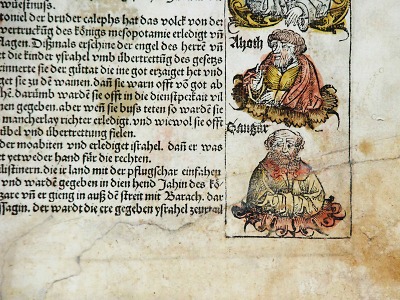 wüestnuss.
toniel der bruder calephs hat das volck von der
vertruckūg des königs mesopotamie erledigt vñ
lagen. Dißmals erschine der engel des herrē vñ
et die kinder ysrahel vmb übertrettūg des gesetzs
einerte sie der güttat die ine got erzaiget het vnd
get sie zů dē wainen. dañ sie warn offt võ got ab
hē. darumb wardē sie offt in die dienstperkait vil
en gegeben. aber weñ sie buss teten so warde ist
mancherlay richter erledigt. vnd wiewol sie offt
übel vnd übertrettung fielen.
der moabiten vnd erledigt israhel. dañ er was
et yetweder hand für die rechten.
ilistinern. die ir land mit der pflugschar einfahen
vnd wardē gegeben in dien hend Jahin des kö
zare vñ er gieng in auß dē streit mit Barach. dar
ssagin. der wardt die ere gegeben ysrahel
Ahoth
Sangar